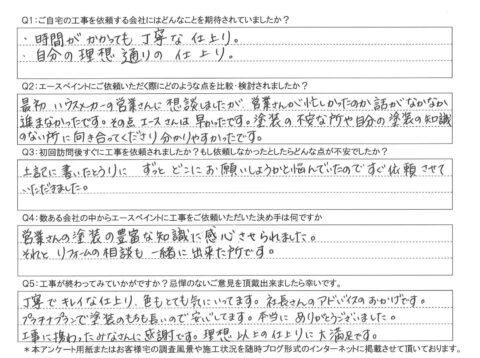 Q1:ご自宅の工事を依頼する会社にはどんなことを期待されていましたか?
・時間がかかっても丁寧な仕上り。
・自分の理想通りの仕上り。
Q2:エースペイントにご依頼いただく際にどのような点を比較・検討されましたか?
最初ハウスメーカーの営業さんに想談しましたが営業さんが忙しかったのか話がなかなか
進まなかったです。その点エースさんは早かったです。塗装の不安な所や自分の塗装の知識
のない所に向き合ってくださり分かりやすかったです。
Q3:初回訪問後すぐに工事を依頼されましたか?もし依頼しなかったとしたらどんな点が不安でしたか?
上記に書いたとうりに ずっとどこにお願いしようかと悩んでいたのですぐ依頼させて
いただきました。
Q4:数ある会社の中からエースペイントに工事をご依頼いただいた決め手は何ですか
営業さんの塗装の豊富な知識に感心させられました。
それと リフォームの相談も一緒に出来た所です。
Q5:工事が終わってみていかがですか?忌憚のないご意見を頂戴出来ましたら幸いです。
丁寧でキレイな仕上り、色もとても気にいってます。社長さんのアドバイスのおかげです。
プラチナプランで塗装のもちも長いので安心してます。本当にありがとうございました。
工事に携わったみなさんに感謝です。理想以上の仕上りに大満足です。
*本アンケート用紙またはお客様宅の調査風景や施工状況を随時ブログ形式のインターネットに掲載させて頂いております。